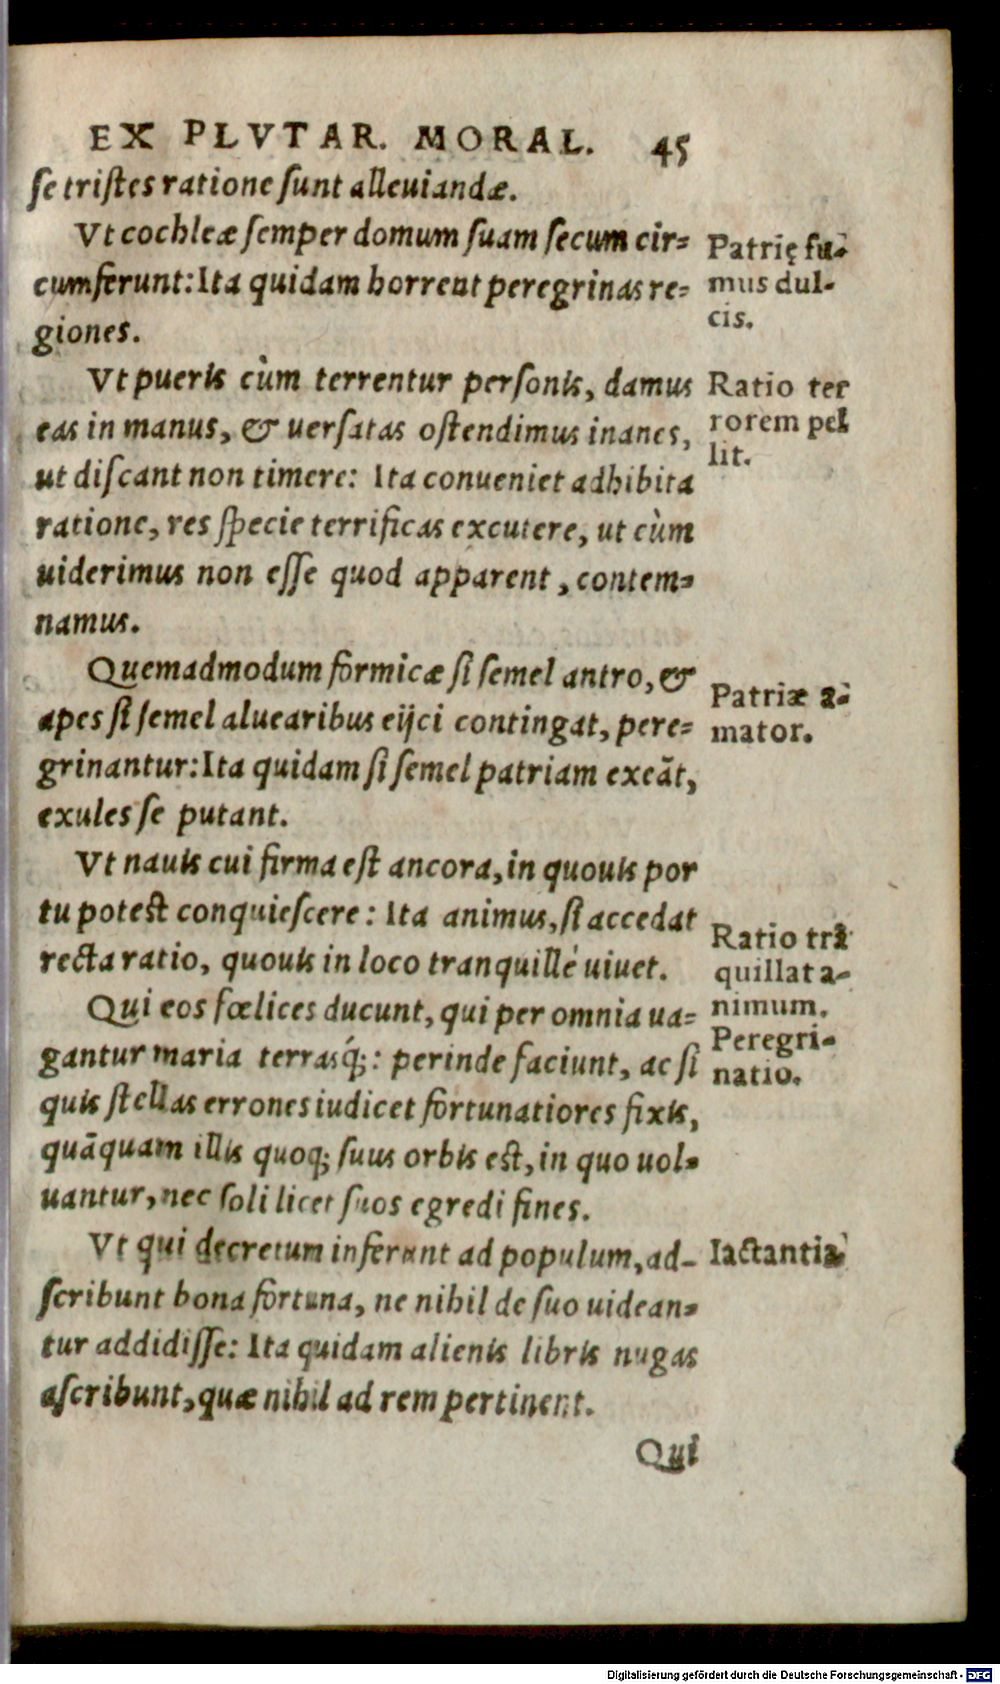 EX PLVTAR. MORAL. 45
se tristes ratione sunt alleuiandæ.
Vt cochleæ semper domum suam secum cir=
cumferunt: Ita quidam horrent peregrinas re=
giones.
Patrię fu-
mus dul-
cis.
Vt pueris cùm terrentur personis, damus
eas in manus, & uersatas ostendimus inanes,
ut discant non timere: Ita conueniet adhibita
ratione, res specie terrificas excutere, ut cùm
uiderimus non esse quod apparent, contem=
namus.
Ratio ter
rorem pel
lit.
Quemadmodum formicæ si semel antro, &
apes si semel aluearibus eijci contingat, pere=
grinantur: Ita quidam si semel patriam exeāt,
exules se putant.
Patriæ a-
mator.
Vt nauis cui firma est ancora, in quouis por
tu potest conquiescere: Ita animus, si accedat
recta ratio, quouis in loco tranquillè uiuet.
Ratio trā
quillat a-
nimum.
Qui eos fœlices ducunt, qui per omnia ua=
gantur maria terrasq́;: perinde faciunt, ac si
quis stellas errones iudicet fortunatiores fixis,
quāquam illis quoq; suus orbis est, in quo uol=
uantur, nec soli licet suos egredi fines.
Peregri-
natio.
Vt qui decretum inferunt ad populum, ad-
scribunt bona fortuna, ne nihil de suo uidean=
tur addidisse: Ita quidam alienis libris nugas
ascribunt, quæ nihil ad rem pertinent.
Iactantia
Qui
Digitalisierung gefördert durch die Deutsche Forschungsgemeinschaft - DFG